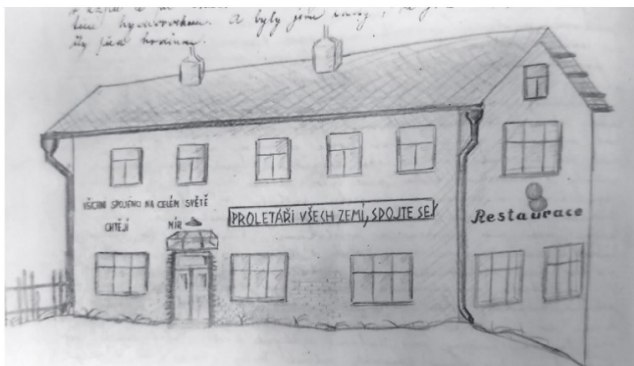 A byly jsme
VŠICHNI SPOJENCI NA CELÉM SVĚTĚ
CHTĚJÍ MÍR
PROLETÁŘI VŠECH ZEMÍ, SPOJTE SE!
Restaurace